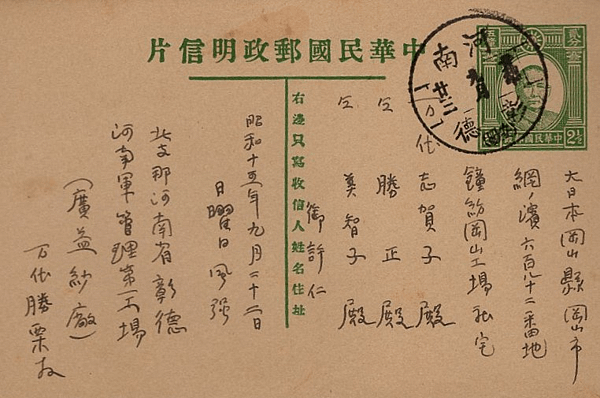 中華民國郵政明信片
貳分半
中華民國郵政
2½
河南
彰德
廿三
九月
大日本岡山縣岡山市
網ノ濱六百八十二番地
鐘紡岡山工場社宅
万代志賀子殿
仝勝正殿
仝美智子殿
御許仁
右邊只寫收信人姓名住址
昭和十五年九月二十二日
日曜日風强
北支那河南省彰德
河南軍管理第一工場
(廣益紗廠)
万代勝